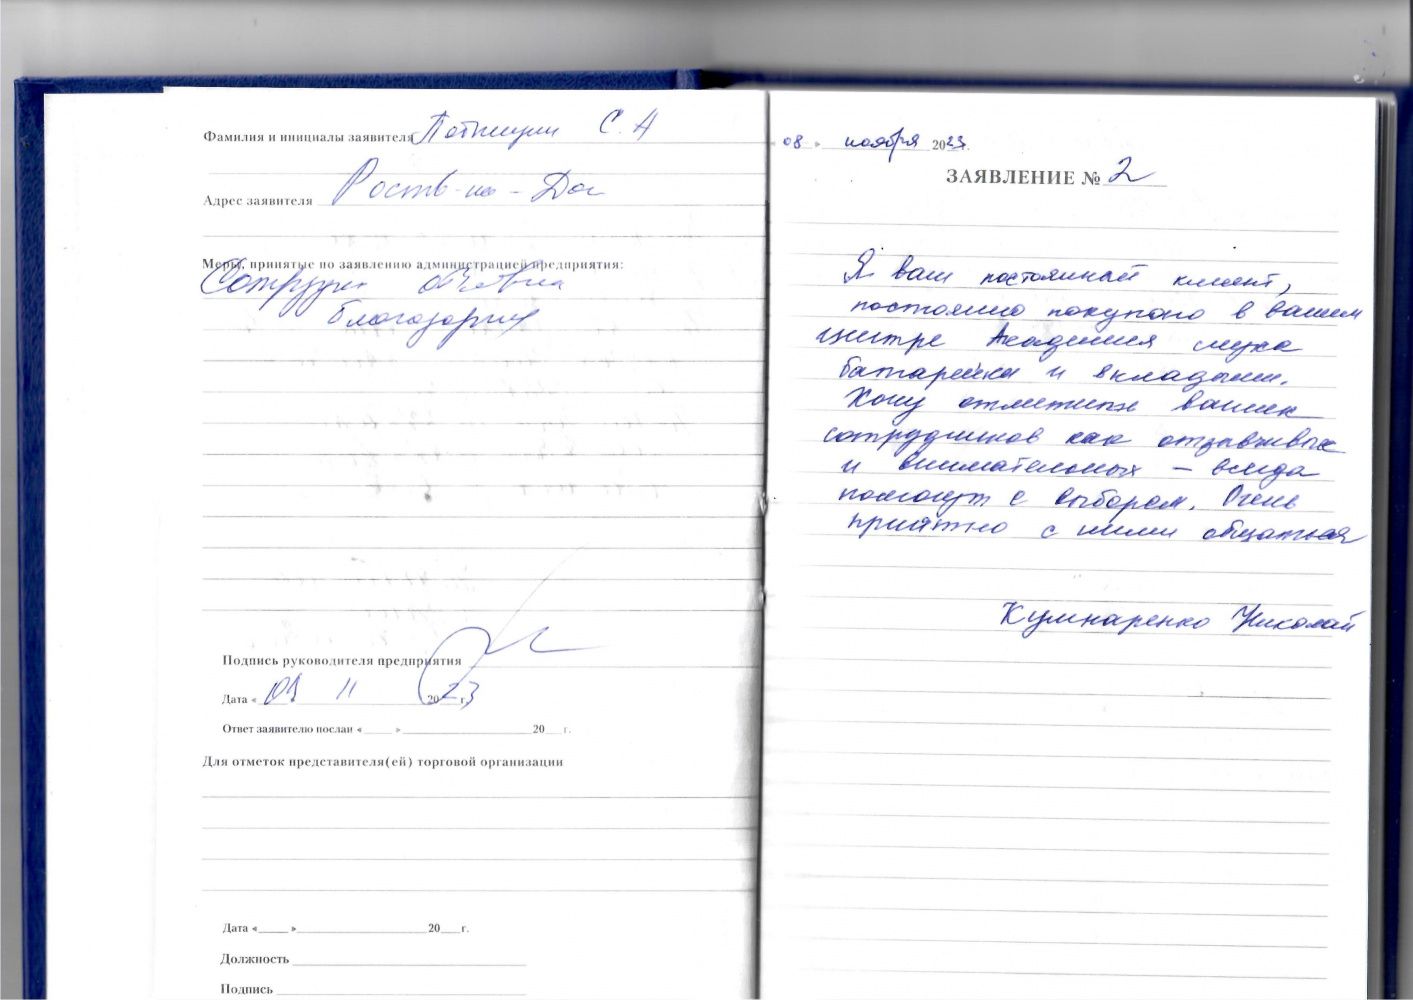 Фамилия и инициалы заявителя С. А
Адрес заявителя Роств-на-Дон
Меры, принятые по заявлению администрацией предприятия:
Сотрудн объявлена
благодарность
Подпись руководителя предприятия
Дата « 09 11 2023 г.
Ответ заявителю послан « » 20 г.
Для отметок представителя(ей) торговой организации
Дата « » 20 г.
Должность
Подпись
« 08 » ноября 2023.
ЗАЯВЛЕНИЕ № 2
Я ваш постоянный клиент,
постоянно покупаю в вашем
центре Академия слуха
батарейки и вкладыши.
Хочу отметить ваших
сотрудников как отзывчивых
и внимательных – всегда
помогут с выбором. Очень
приятно с ними общаться
Николай